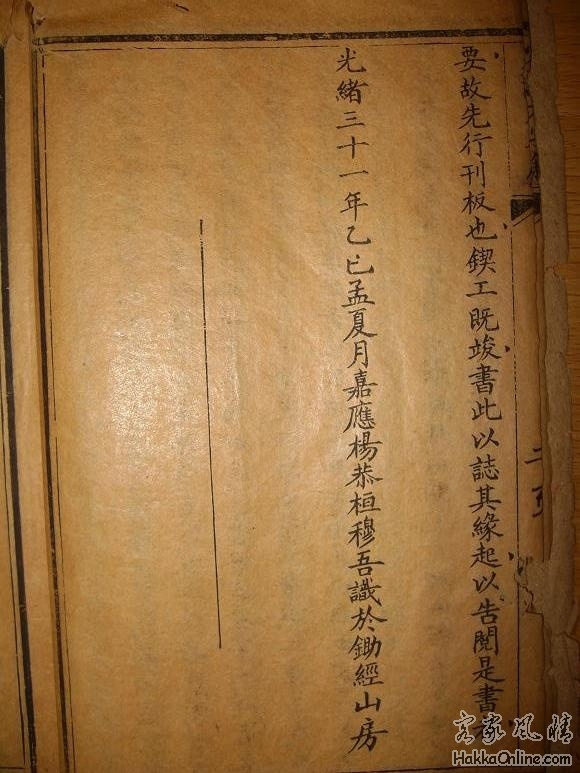 要故先行刊板也鍥工既竣書此以誌其緣起以告閱是書
光緒三十一年乙巳孟夏月嘉應楊恭桓穆吾識於鋤經山房
客家風情
HakkaOnline.com